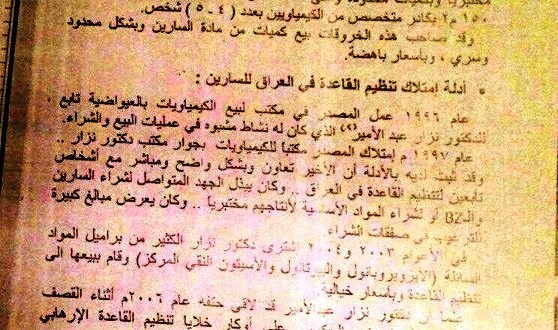 ١٥٠ م٢ بكادر متخصص من الكيمياويين بعدد ( ٤ - ٥ ) شخص.
وقد صاحب هذه الخروقات بيع كميات من مادة السارين وبشكل محدود
وسري ، وبأسعار باهضة.
أدلة إمتلاك تنظيم القاعدة في العراق للسارين :
عام ١٩٩٦ عمل المصدر في مكتب لبيع الكيمياويات بالعيواضية تابع
للدكتور نزار عبد الأمير الذي كان له نشاط مشبوه في عمليات البيع والشراء.
عام ١٩٩٧ م إمتلاك المصدر مكتباً للكيمياويات بجوار مكتب دكتور نزار ..
وقد ثبت لديه بالأدلة أن الأخير تعاون وبشكل واضح ومباشر مع أشخاص
تابعين لتنظيم القاعدة في العراق .. وكان يبذل الجهد المتواصل لشراء السارين
والـ BZ أو لشراء المواد الأساسية لأنتاجهم مختبريا .. وكان يعرض مبالغ كبيرة
في صفقات الشراء.
في الأعوام ٢٠٠٣ و٢٠٠٤ إشترى دكتور نزار الكثير من براميل المواد
السائلة (الآيزوبروبانول والأسيتون النقي المركز) وقام ببيعها الى
تنظيم القاعدة وبأسعار خيالية.
دكتور نزار عبدالأمير قد لاقى حتفه عام ٢٠٠٦م أثناء القصف
على أوكار خلايا تنظيم القاعدة الإرهابي